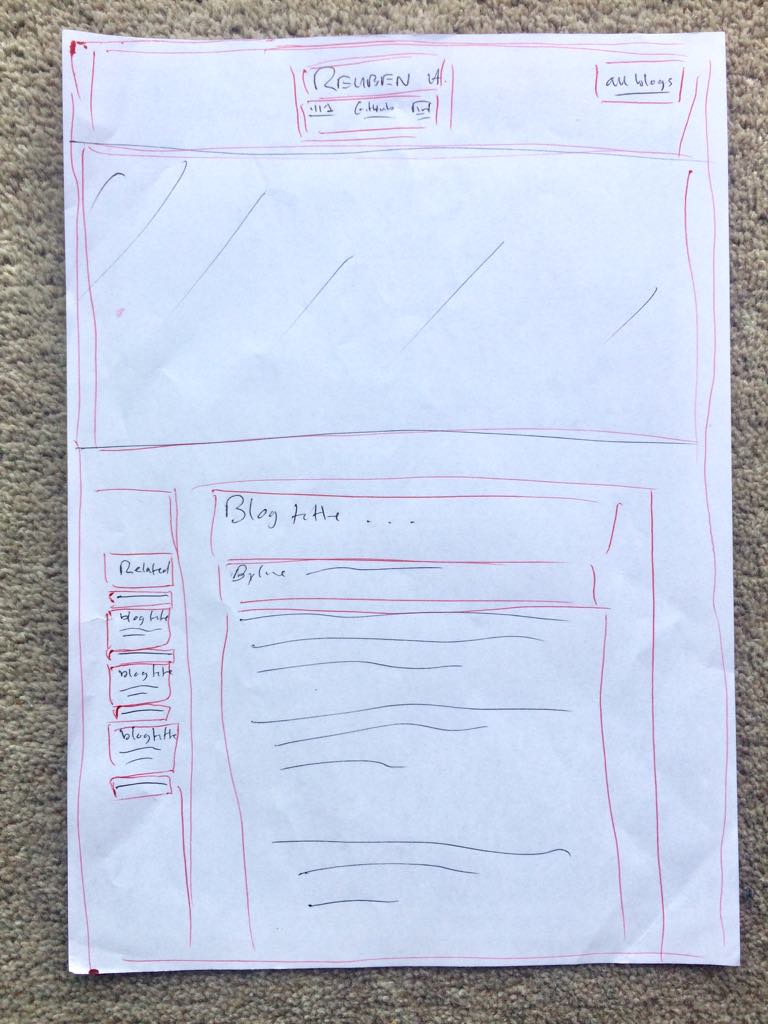 REUBEN
all blogs
GitHub
Blog title ....
Byline
Related
blog title
blog title
blog title